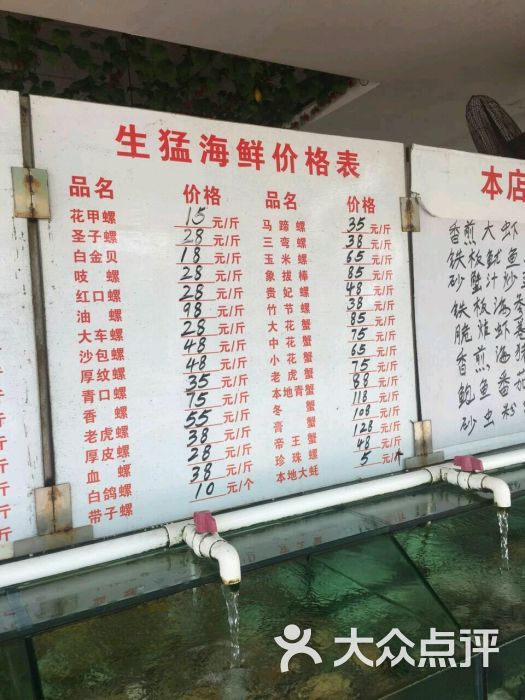 生猛海鲜价格表
品名 价格 品名 价格
花甲螺 15元/斤 马蹄螺 35元/斤
圣子螺 28元/斤 三弯螺 38元/斤
白金贝 18元/斤 玉米螺 65元/斤
吱螺 28元/斤 象拔棒 85元/斤
红口螺 28元/斤 贵妃螺 48元/斤
油螺 98元/斤 竹节螺 38元/斤
大车螺 28元/斤 大花蟹 85元/斤
沙包螺 48元/斤 中花蟹 75元/斤
厚纹螺 48元/斤 小花蟹 65元/斤
青口螺 35元/斤 老虎蟹 75元/斤
香螺 75元/斤 本地青蟹 88元/斤
老虎螺 55元/斤 冬蟹 118元/斤
厚皮螺 38元/斤 膏蟹 108元/斤
血螺 28元/斤 帝王蟹 128元/斤
白鸽螺 38元/斤 珍珠螺 48元/斤
带子螺 10元/个 本地大蚝 5元/个
本店
香煎大虾
铁板鱿鱼
砂蟹汁炒
铁板海
香煎海
鲍鱼番
砂虫粉
大众点评